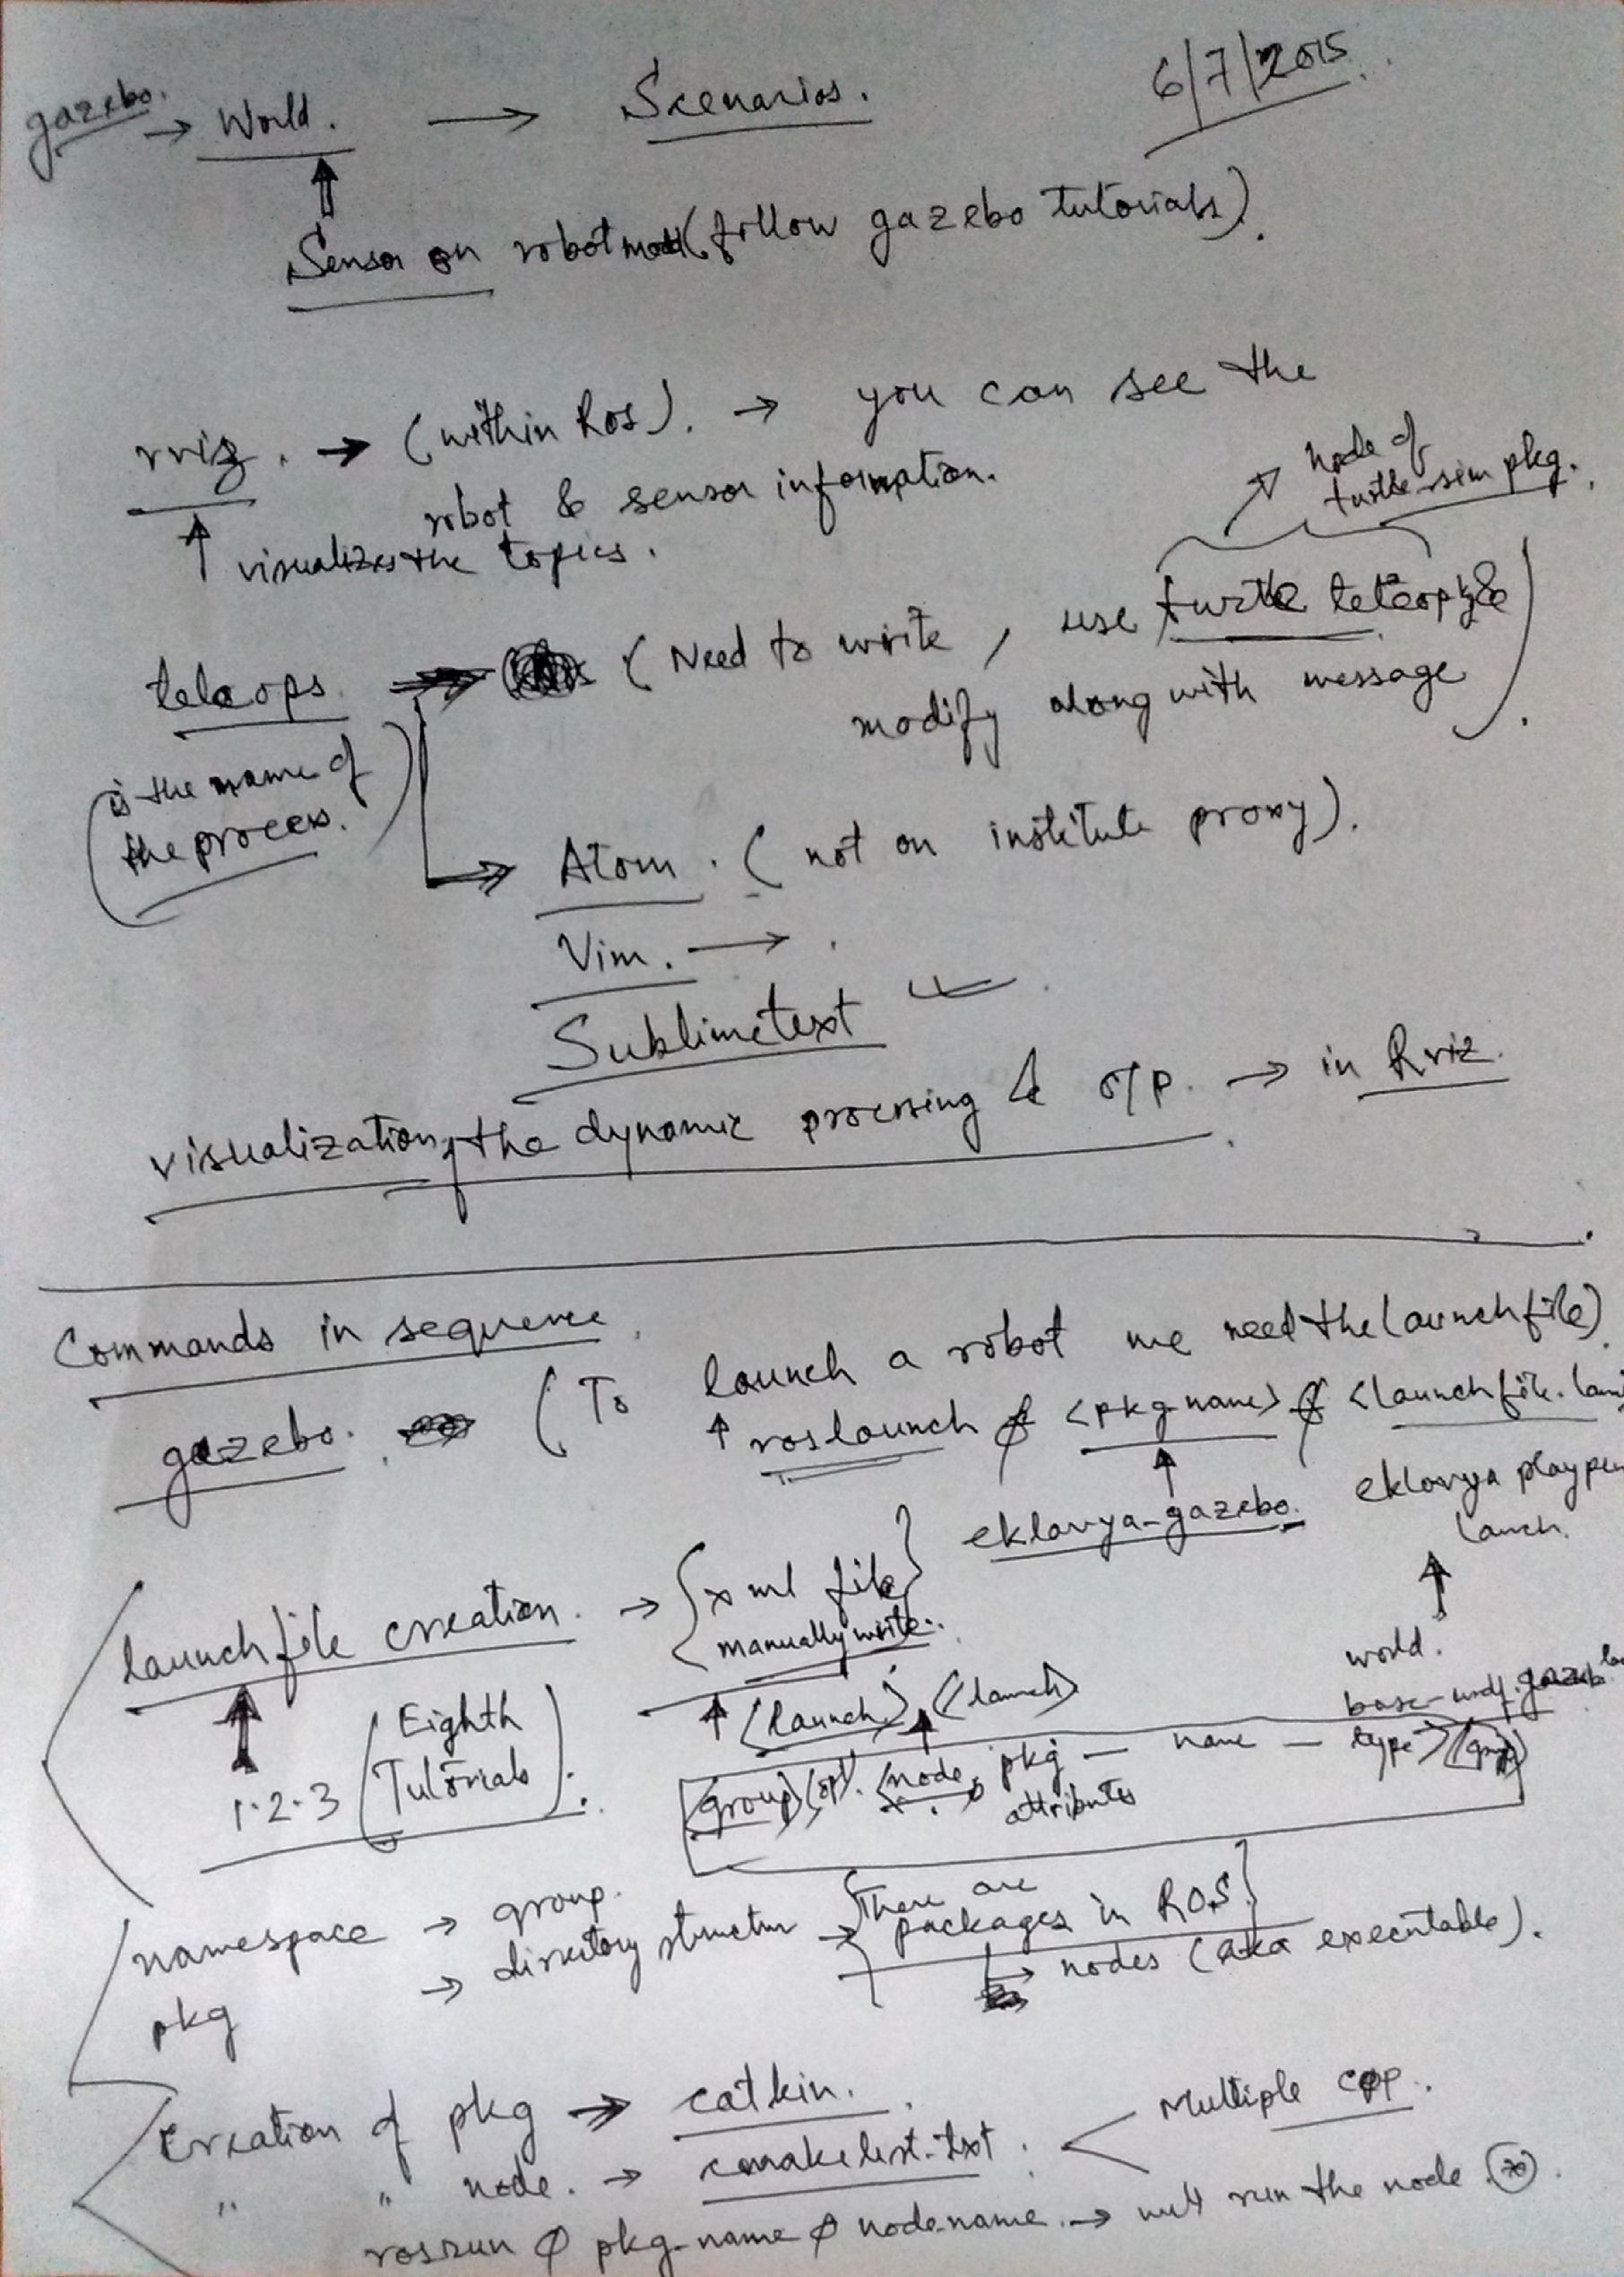 6/7/2015
gazebo. → World. → Scenarios.
Sensor on robot model (follow gazebo tutorials).
rviz. → (within Ros). → you can see the
robot & sensor information.
visualizes the topics.
node of
turtle-sim pkg.
teleops (Need to write, use turtle teleop &
modify along with message).
(is the name of
the process.)
Atom. (not on institute proxy).
Vim. →
Sublimetext
visualization of the dynamic processing & o/p. → in Rviz.
Commands in sequence.
gazebo. (To launch a robot we need the launch file)
↑ roslaunch ∅ <pkg-name> ∅ <launchfile.
eklavya-gazebo. eklavya playpen
launch.
launchfile creation. → {xml file}
manually write.
world.
<launch> <launch>
1.2.3 (Eighth
Tutorials).
<group>(opt). <node, pkg — name — type>
attributes
namespace → group.
pkg → directory structur → {There are
packages in ROS}
→ nodes (aka executable).
Creation of pkg → catkin.
" " node. → cmakelist.txt. < Multiple cpp.
rosrun ∅ pkg-name ∅ nodename. → will run the node.